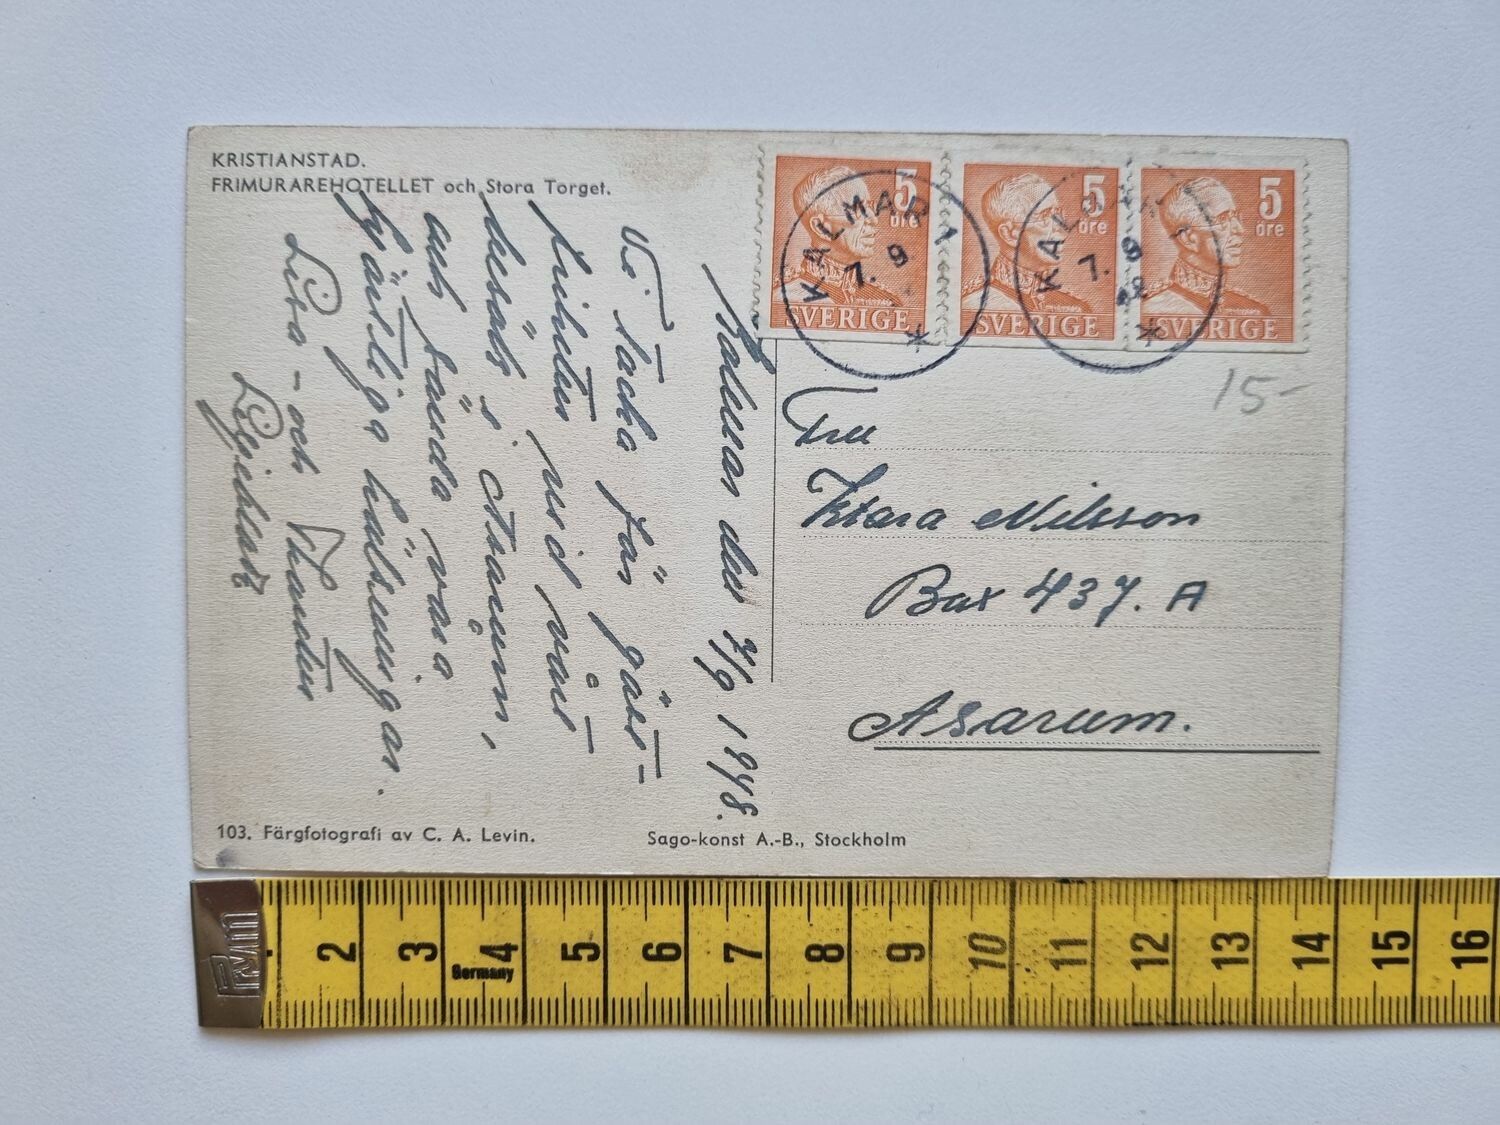 KRISTIANSTAD.
FRIMURAREHOTELLET och Stora Torget.
Kalmar den 7/9 1948.
Vi tacka för gäst-
friheten vid vårt
besök i Asarum,
och sända våra
hjärtliga hälsningar.
Lisa - och Thentus
Liljeblad
103. Färgfotografi av C. A. Levin.
Sago-konst A.-B., Stockholm
5
öre
SVERIGE
5
öre
SVERIGE
5
öre
SVERIGE
KALMAR 1
7. 9
KALMAR 1
7. 9
48
15-
Fru
Klara Nilsson
Box 437. A
Asarum.
Prym
2 3 4 5 6 7 8 9 10 11 12 13 14 15 16
Germany